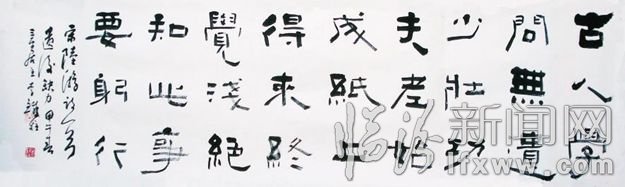 古人學
問無遺
少壯功
夫老始
成紙上
得來終
覺淺絕
知此事
要躬行
宋陸游詩一首
遺後缺力甲午春
临汾新闻网
lfxww.com